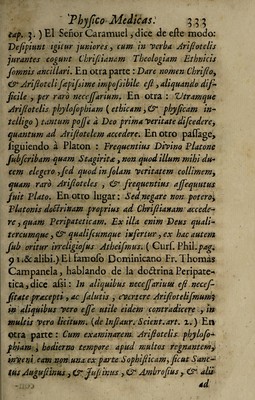 Physico-Medicas. 333
cap. 3. ) El Señor Caramuel, dice de este modo:
Desipiunt igitur juniores, cum in verba Aristotelis
jurantes cogunt Christianam Theologiam Ethnicis
somniis ancillari. En otra parte : Dare nomen Christo,
& Aristoteli sæpissime impossibile est, aliquando dif-
ficile, per rarò necessarium. En otra : Utramque
Aristotelis phylosophiam ( ethicam, & physicam in-
telligo ) tantum posse à Deo prima veritate discedere,
quantum ad Aristotelem accedere. En otro passage,
siguiendo à Platon : Frequentius Divino Platone
subscribam quam Stagiritæ, non quod illum mihi du-
cem elegero, sed quod in solam veritatem collimem,
quam rarò Aristoteles, & frequentius assequutus
fuit Plato. En otro lugar : Sed negare non potero,
Platonis doctrinam proprius ad Christianam accede-
re, quam Peripateticam. Ex illa enim Deus quali-
tercumque, & qualiscumque infertur, ex hac autem
sub oritur irreligiosus Atheismus. ( Curs. Phil. pag.
91. & alibi.) El famoso Dominicano Fr. Thomas
Campanela, hablando de la doctrina Peripate-
tica, dice assi : In aliquibus necessarium est neces-
sitate præcepti, ac salutis, evertere Aristotelismum;
in aliquibus vero esse utile eidem contradicere, in
multis vero licitum. (de Instaur. Scient. art. 2.) En
otra parte : Cum examinarem Aristotelis phyloso-
phiam, hodierno tempore apud multos regnantem,
inveni eam non una ex parte Sophisticam, sicut Sanc-
tus Augustinus, & Justinus, & Ambrosius, & alii
ad